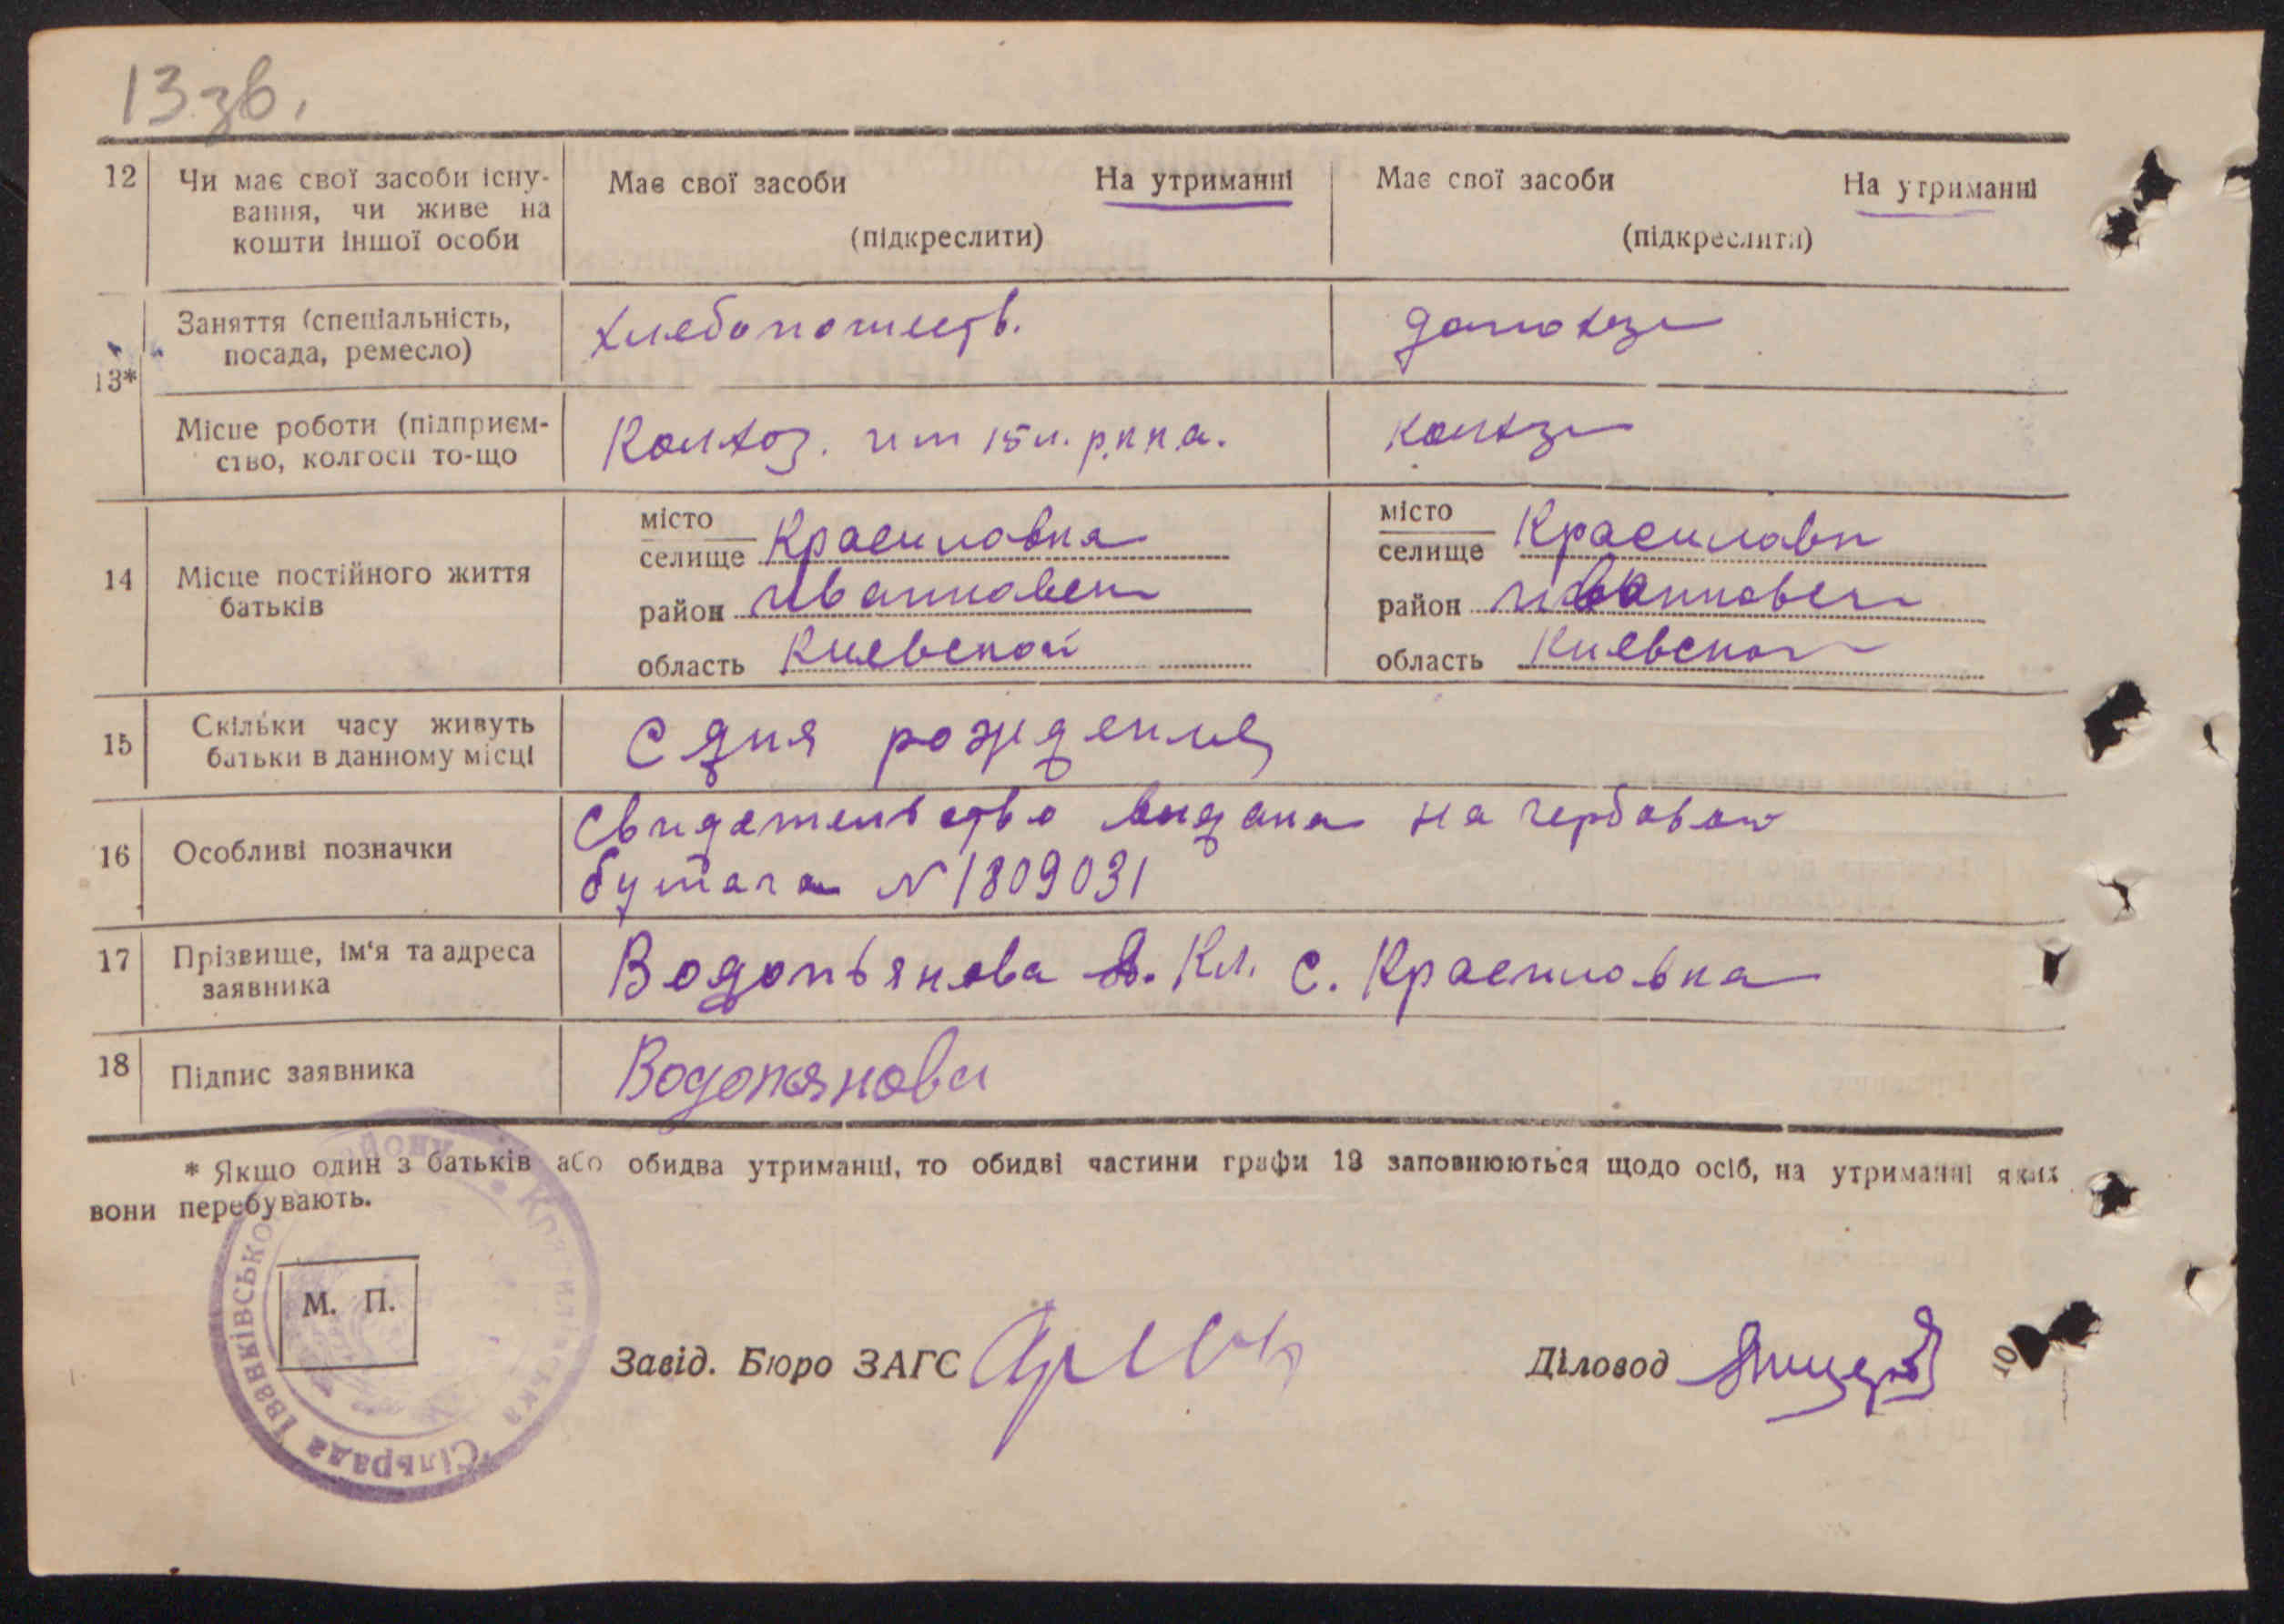 13 зв.
12 Чи має свої засоби існу- Має свої засоби На утриманні Має свої засоби На утриманні
вання, чи живе на
кошти іншої особи (підкреслити) (підкреслити)
13* Заняття (спеціальність,
посада, ремесло)
Місце роботи (підприєм- Колхоз. им 15 л. р.к.к.а.
ство, колгосп то-що
14 Місце постійного життя
батьків
місто
селище Красиловка
район Иванковск
область Киевской
місто
селище Красиловк
район Иванковск
область Киевской
15 Скільки часу живуть С дня рождения
батьки в данному місці
16 Особливі позначки Свидетельство видана на гербовой
бумага N 1809031
17 Прізвище, ім'я та адреса Водопьянова А. Кл. с. Красиловка
заявника
18 Підпис заявника Водопянова
* Якщо один з батьків або обидва утриманці, то обидві частини графи 13 заповнюються щодо осіб, на утриманні яких
вони перебувають.
М. П.
Завід. Бюро ЗАГС
Діловод
Сільрада Іванківсько району Красилівська